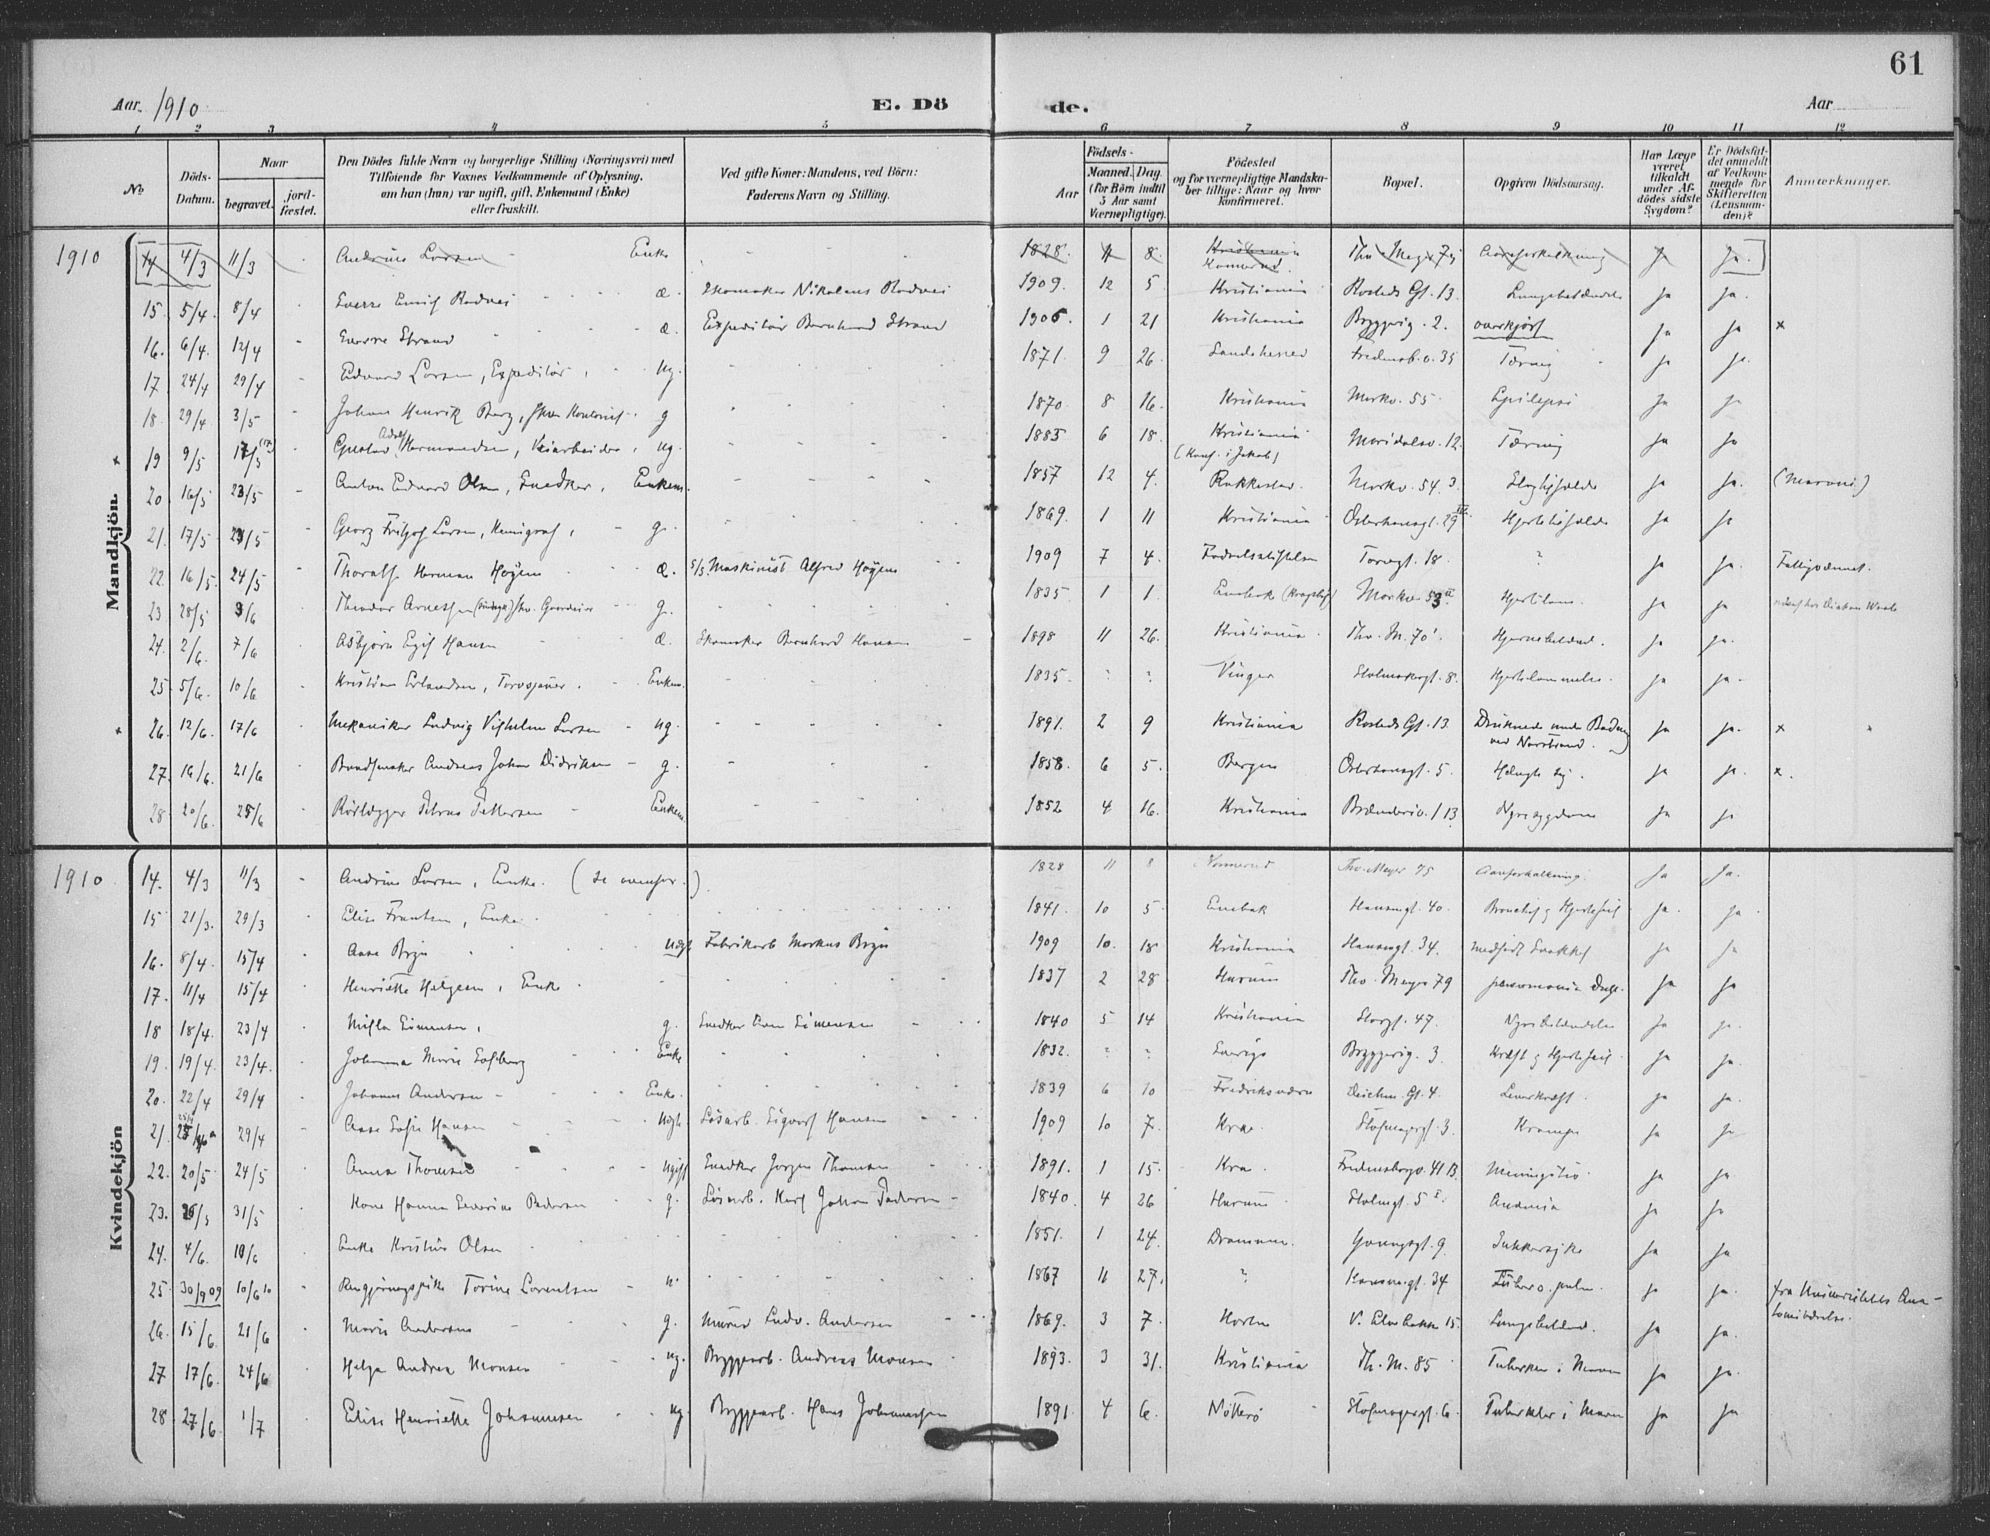 61
Aar. 1910
E. Dö
de.
Aar
1 2 3 4 5 6 7 8 9 10 11 12
No
Döds-Datum.
Naar
begravet.
jord-fæstet.
Den Dödes fulde Navn og borgerlige Stilling (Næringsvei) med
Tilföiende for Voxnes Vedkommende af Oplysning,
om han (hun) var ugift, gift, Enkemand (Enke)
eller fraskilt.
Ved gifte Koner: Mandens, ved Börn:
Faderens Navn og Stilling.
Födsels-
Aar
Maaned. Dag.
(for Börn indtil
5 Aar samt
Værnepligtige).
Födested
og for værnepligtige Mandska-
ber tillige: Naar og hvor
konfirmeret.
Bopæl.
Opgiven Dödsaarsag.
Har Læge
været
tilkaldt
under Af-
dödes sidste
Sygdom?
Er Dödsfal-
det anmeldt
af Vedkom-
mende for
Skifteretten
(Lensman-
den)?
Anmærkninger.
Mandkjön.
1910 14 4/3 11/3 Andrine Larsen Enke 1828. 11 8. Kristiania Ja Ja.
15. 5/4. 8/4 Sverre Emil Rodvei æ. Skomaker Nikolaus Rodvei 1909. 12 5. Kristiania Rosteds Gt. 13. Lungebetændelse Ja Ja.
16. 6/4. 12/4 Sverre Strand æ. Expeditör Bernhard Strand 1906. 1 21 Kristiania Byggerig. 2. overkjört Ja Ja x
17. 24/4 29/4 Edvard Larsen, Expeditör, ug. 1871. 9 26. Fredensb.v. 35 Tæring Ja Ja.
18. 29/4 3/5 Johan Henrik Berg, g 1870. 8 16. Kristiania Markv. 55 Epilepsi Ja Ja
x 19 9/5 17/5 Gustav Adolf Hermansen, Veiarbeider, ug. 1885 6 18. Kristiania (Konf. i Jakob) Maridalsv. 12. Tæring Ja Ja
20. 16/5 23/5 Anton Edvard Olsen, Snedker, Enkem. 1857 12 4. Rakkestad. Markv. 54. 3. Slagtilfælde Ja Ja.
21. 17/5 23/5 Georg Fritjof Larsen, Kemigraf, g. 1869. 1 11 Kristiania Osterhausgt. 29 Hjertetilfælde Ja Ja
22. 16/5. 24/5 Thoralf Herman Höyem æ. Maskinist Alfred Höyem 1909 7 4. Födselsstiftelsen Torvgt. 18. ? Ja Ja. Fattigvæsenet.
23. 28/5 3/6 Theodor Arnesen g. 1835. 1 1. Enebak Markv. 53 Hjertelam. Ja Ja
24. 2/6. 7/6 Asbjörn Egil Hansen æ. Skomaker Bernhard Hansen 1898 11 26. Kristiania Thv. M. 70 Hjernebetænd. Ja Ja.
25 5/6. 10/6 Kristian Erlandsen, Torvsjauer. Enkem. 1835. ? ? Vinger Holmskergt. 8. Hjertelammelse. Ja Ja.
x 26. 12/6. 17/6 Mekaniker Ludvig Vilhelm Larsen ug. 1891. 2 9 Kristiania Rosteds Gt. 13. Druknede under Badning ved Nordstrand. Ja Ja. x
27. 16/6. 21/6 Andreas Johan Didriksen g. 1858. 6 5. Bergen Osterhausgt. 5. Hængte sig. Ja Ja. x.
28. 20/6. 25/6 Rörlægger Petrus Pettersen Enkem. 1852 4 16. Kristiania Brænderiv. 1 13. Nyresygdom Ja Ja
Kvindekjön
1910 14. 4/3 11/3 Andrine Larsen, Enke. (se ovenfor.) 1828 11 8 Thv. Meyer 75 Aareforkalkning. Ja Ja.
15 21/3. 29/3 Elise Frantsen, Enke. 1841. 10 5. Enebak Hausmgt. 40. Bronchit og Hjertefeil Ja. Ja.
16. 8/4. 15/4 Aase Bryn Fabrikarb. Markus Bryn 1909 10. 18 Kristiania Hausmgt. 34. Ja Ja
17. 11/4 15/4 Henriette Helgesen, Enke. 1837 2 28 Hurum Thv. Meyer 79 Ja Ja
18 18/4. 23/4 Milla Simensen, g. Snedker Simensen 1840 5 14 Kristiania Storgt. 47. Nyrebetændelse Ja Ja.
19. 19/4. 23/4. Johanna Marie Solberg Enke 1832. ? ? Sverige Byggerig. 3. Kræft og Hjertefeil. Ja Ja.
20. 22/4 29/4 Johanne Andersen Enke. 1839 6 10 Fredriksværn Deichm. Gt. 4. Leverkræft. Ja Ja.
21. 29/4 Aase Sofie Hansen Lösarb. Sigvart Hansen 1909 10 7. Kra. 3. Krampe Ja Ja
22. 20/5. 24/5 Anna Thomsen ugift Snedker Jörgen Thomsen 1891. 1 15. Kra. Fredensborgv. 41 B. Meningitis Ja Ja
23. 31/5 Kone Hanna Severine Pedersen g. Lösarb. Karl Johan Pedersen 1840. 4 26 Hurum Holmgt. 5 Anæmia Ja Ja
24. 4/6. 10/6 Enke Kristine Olsen 1851. 1 24. Drammen. Youngsgt. 9. Sukkersyke Ja Ja
25. 30/9 09 10/6 10 Rengjöringspike Torine Lorentsen u. 1867 11 27. ? Hausmgt. 34 Tuberc. pulm. Ja Ja. fra Universitetets Ana-
tomibærelse.
26. 15/6. 21/6 Marie Andersen g. Murer Ludv. Andersen 1869. 3 7. Horten V. Elvebakke 15. Lungebetænd. Ja Ja.
27 17/6. 24/6 Helga Andrea Monsen ug. Byggearb. Andreas Monsen 1893. 3 31. Kristiania Th. M. 85 Ja Ja.
28 27/6. 1/7 Elise Henriette Johannesen ug. Byggearb. Hans Johannesen 1891. 4 6. Nötterö 6. Tuberkler i Maven Ja Ja